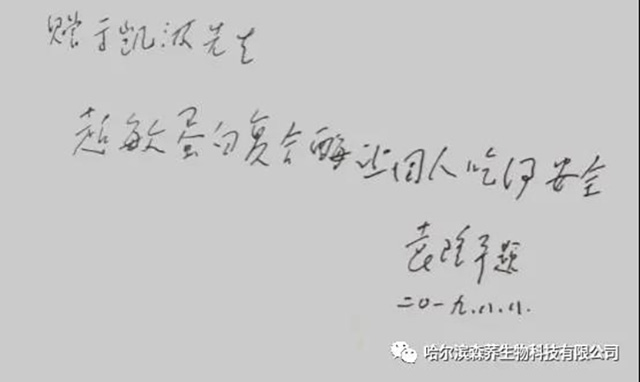 赠于凯波先生
超敏蛋白复合酶让国人吃得安全
袁隆平题
二〇一九.八.八.
哈尔滨森荞生物科技有限公司